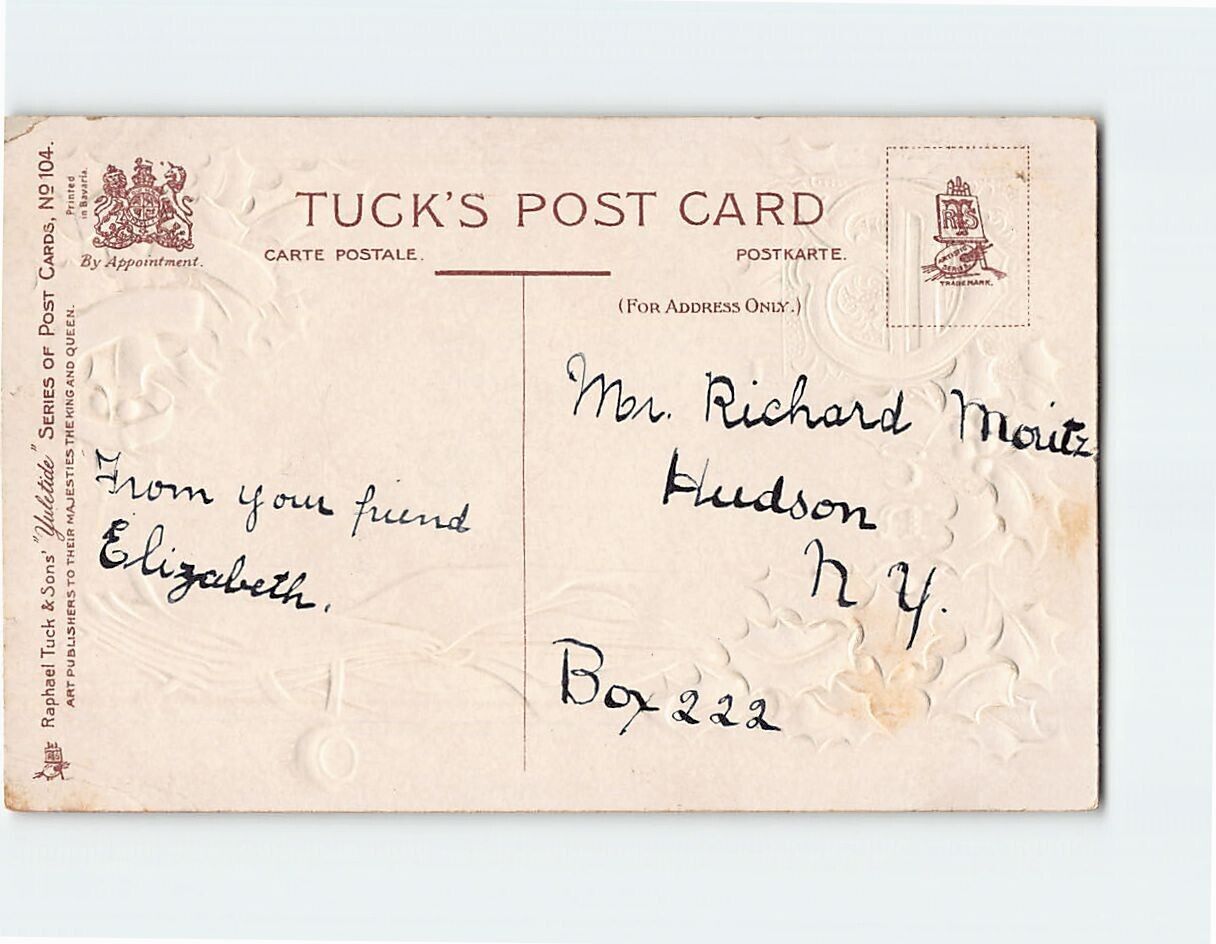 Raphael Tuck & Sons' "Yuletide" SERIES OF POST CARDS, Nº 104.
ART PUBLISHERS TO THEIR MAJESTIES THE KING AND QUEEN.
Printed
in Bavaria.
By Appointment.
TUCK'S POST CARD
CARTE POSTALE.
POSTKARTE.
(FOR ADDRESS ONLY.)
RTS
ARTISTIC
SERIES
TRADE MARK.
From your friend
Elizabeth.
Mr. Richard Moritz
Hudson
N Y.
Box 222